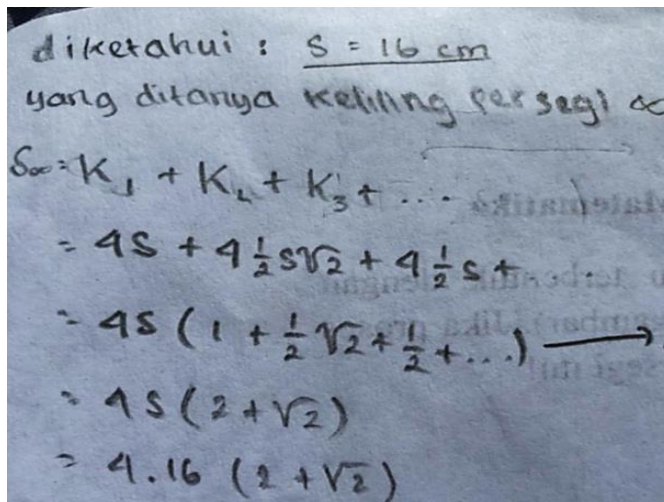 diketahui : s = 16 cm
yang ditanya keliling persegi ∞
S∞ = K₁ + K₂ + K₃ + ...
= 4S + 4 ½ s√2 + 4 ½ s + ..
= 4S ( 1 + ½ √2 + ½ + ... ) →
= 4S ( 2 + √2 )
= 4.16 ( 2 + √2 )